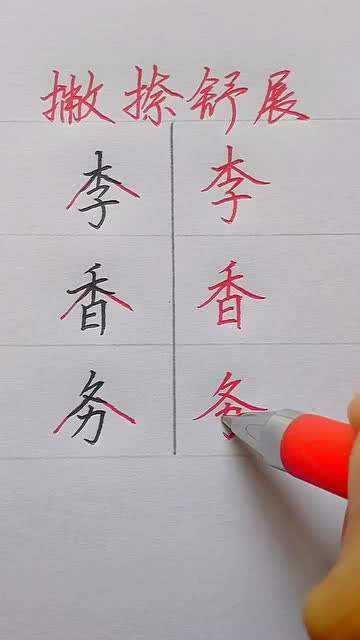 撇捺舒展
李 李
香 香
务 务